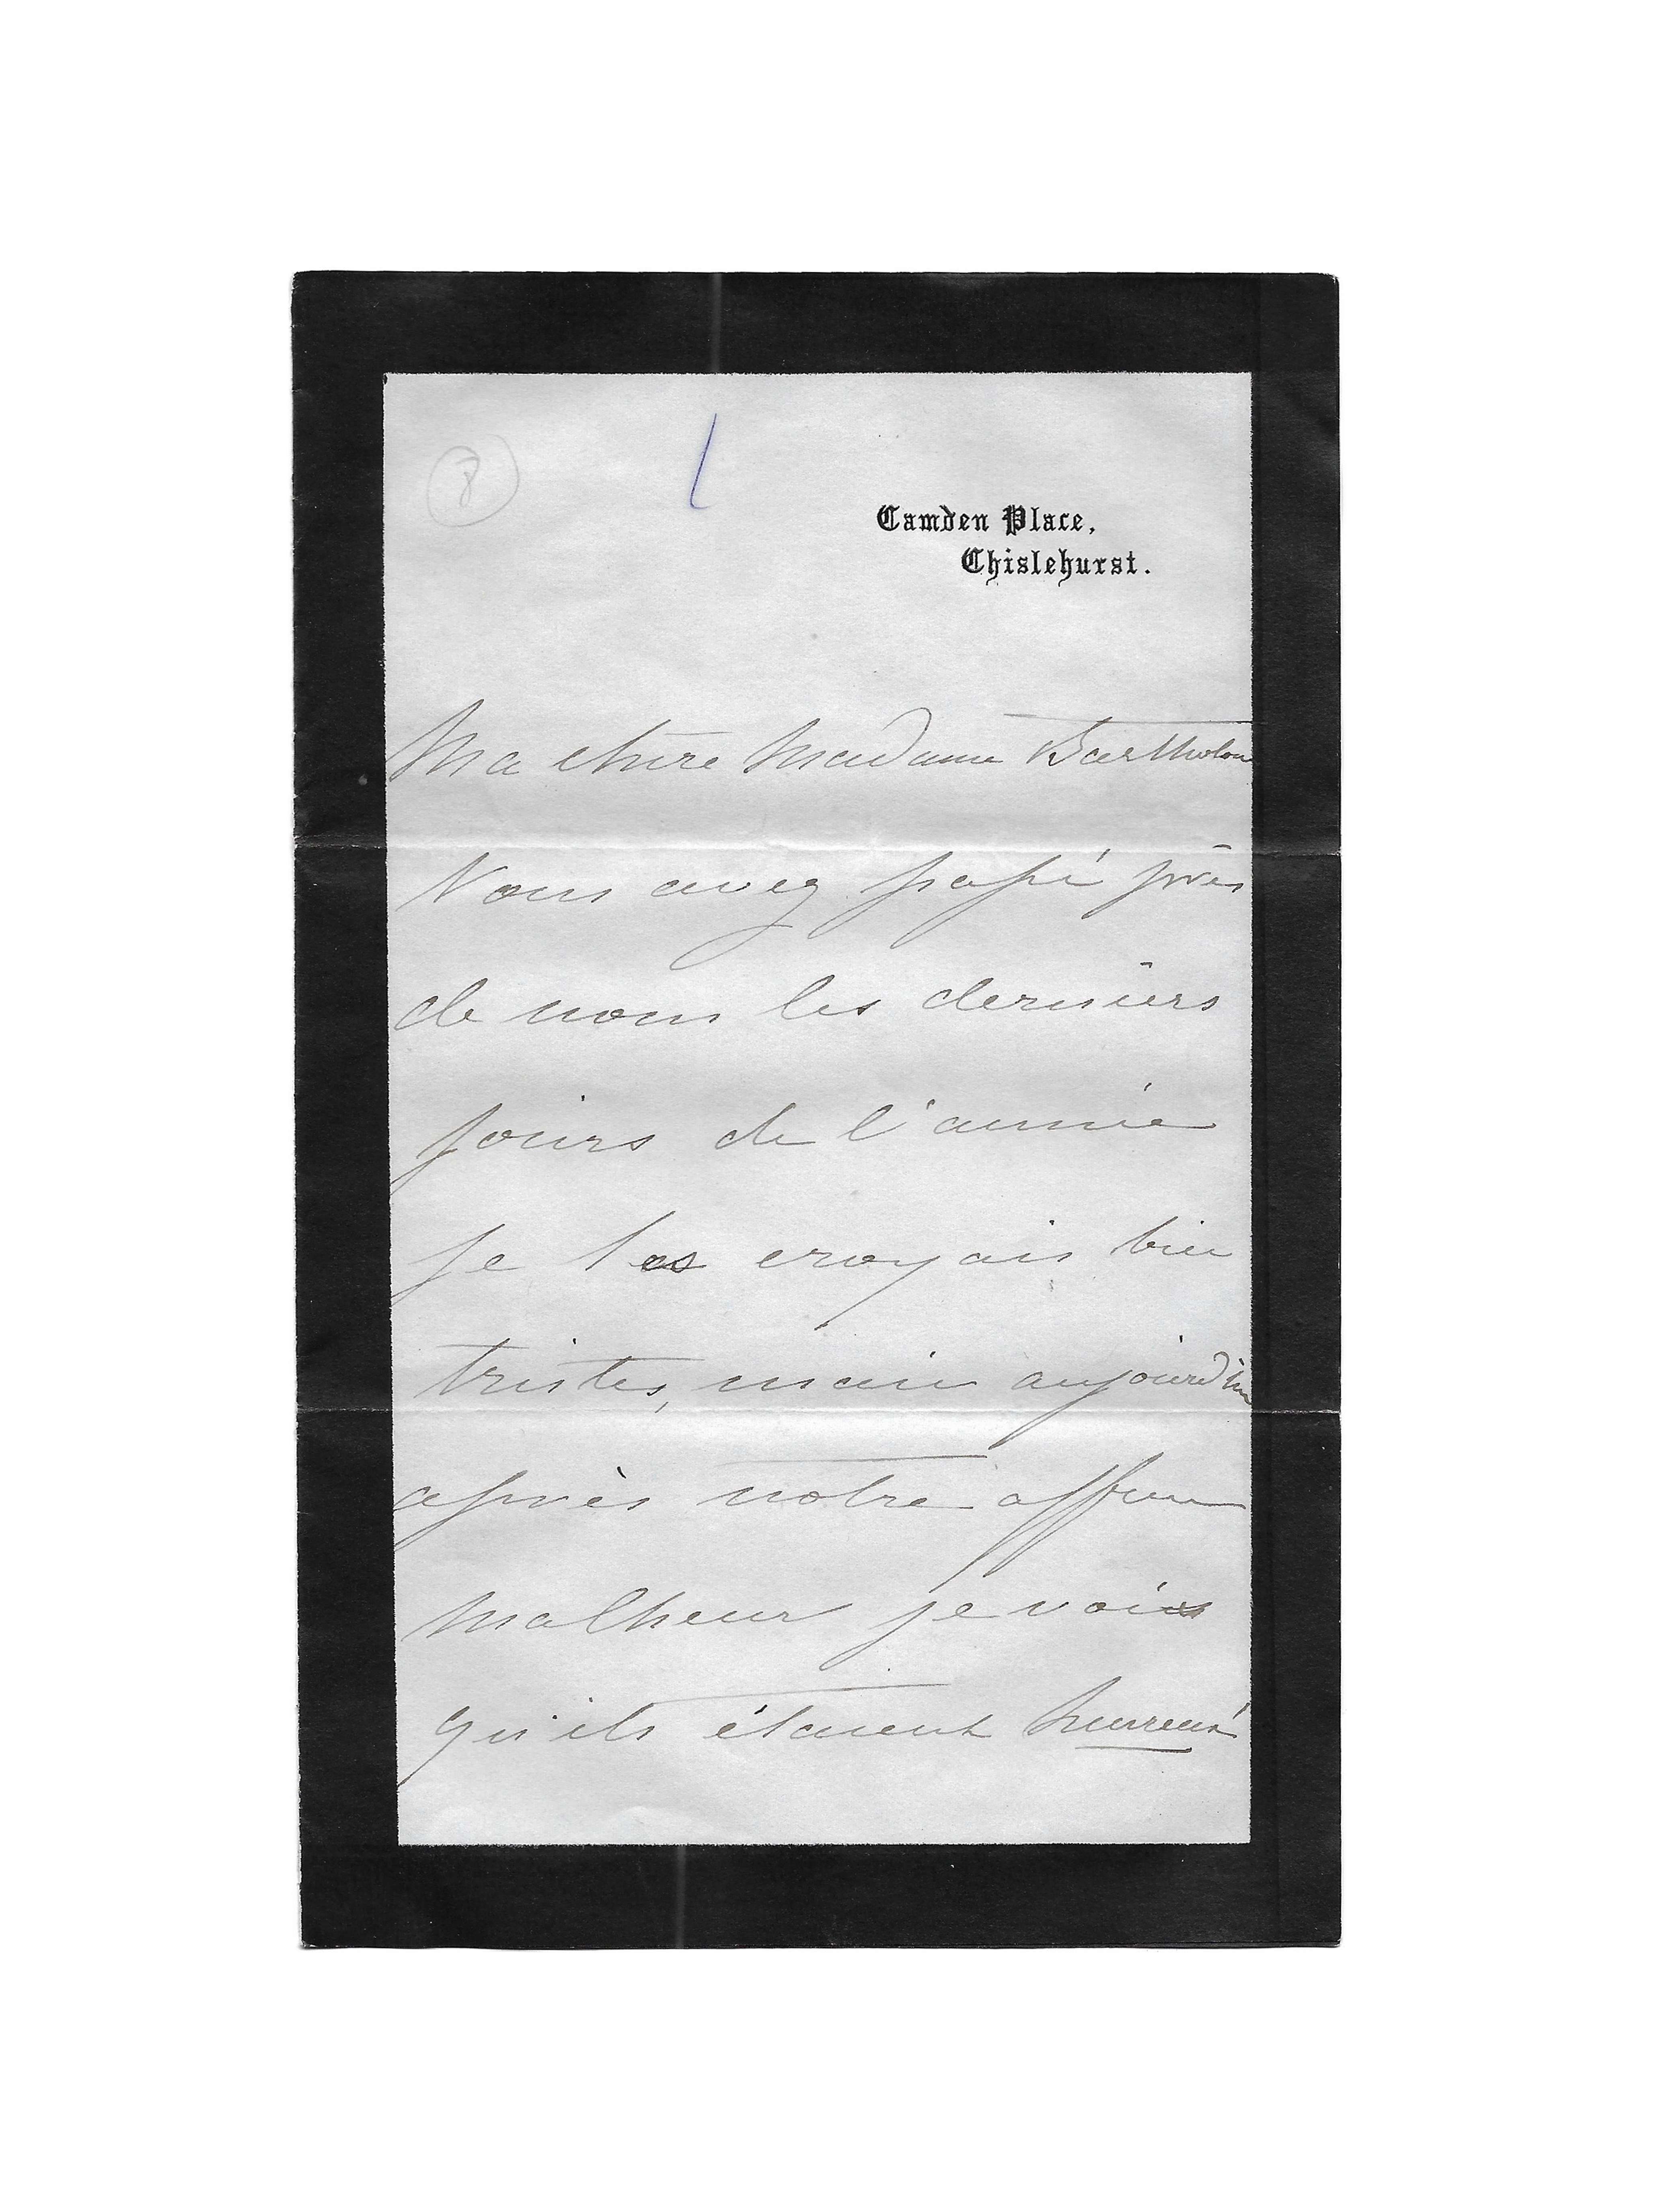 8
Camden Place,
Chislehurst.
Ma chère Madame Bartholon
Vous avez passé près
de nous les derniers
jours de l'année
je les croyais bien
tristes, mais aujourd'hui
après notre affreux
malheur je vois
qu'ils étaient heureux